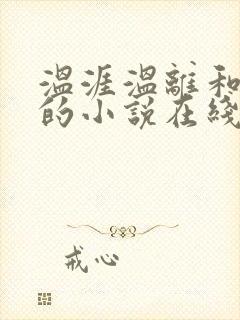 温涯温離和
的小说在綫
戒心